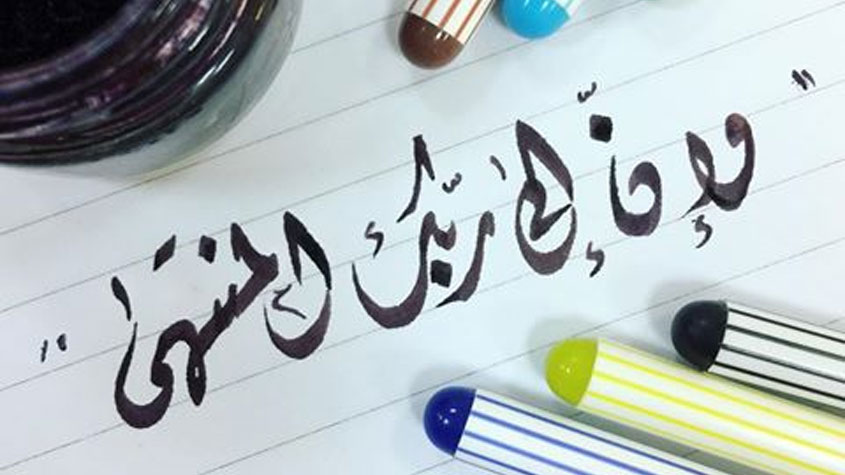 "وإنّ إلى ربّك المنتهى"